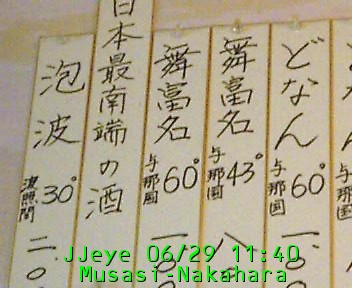 どなん
与那国
60°
一、八
舞富名
与那国
43°
八
舞富名
与那国
60°
一、八
日本最南端の酒
泡波
波照間
30°
二、〇
JJeye 06/29 11:40
Musasi-Nakahara